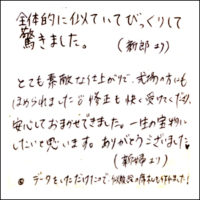 全体的に似ていてびっくりして
驚きました。
(新郎より)
とても素敵な仕上がりで、式場の方にも
ほめられました 修正も快く受けてくださり
安心しておまかせできました。一生の宝物に
したいと思います。ありがとうございました。
(新婦より)
データをいただけたので、 も作れました!